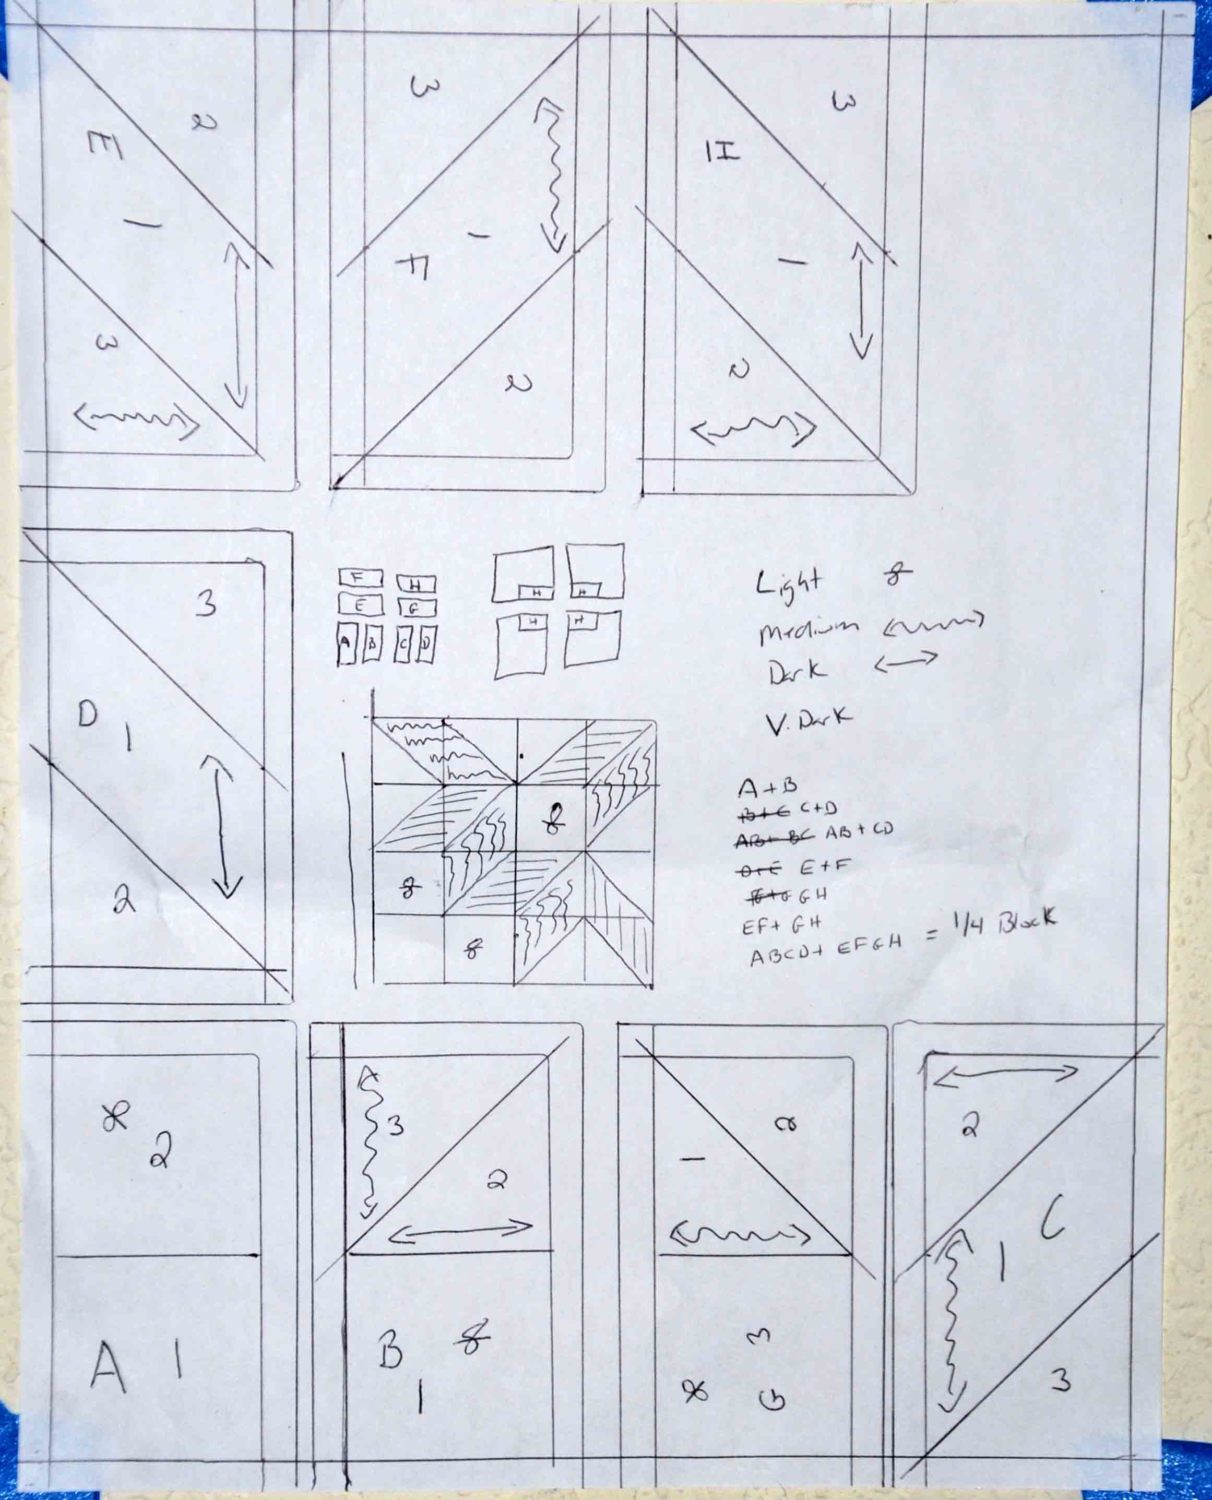 2
E
1
3
3
F
1
2
3
H
1
2
F
H
E
G
A
B
C
D
H
H
H
H
Light 8
Medium
Dark
V. Dark
D
1
3
2
8
8
8
A+B
B+C C+D
AB+BC AB+CD
D+E E+F
F+G GH
EF+ GH
ABCD+ EFGH = 1/4 Block
8
2
A 1
3
2
B 8
1
1
2
3
8 G
2
C
1
3